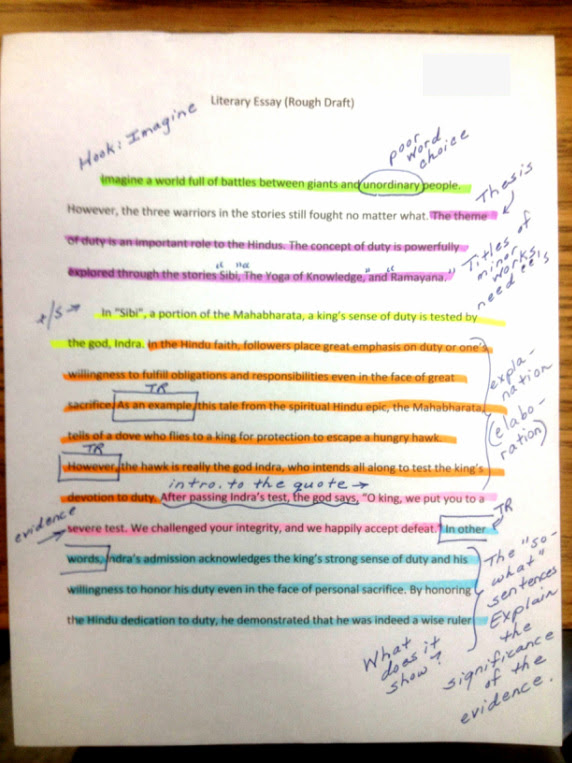 Literary Essay (Rough Draft)
Hook: Imagine
poor
word
choice
Imagine a world full of battles between giants and unordinary people.
Thesis
However, the three warriors in the stories still fought no matter what. The theme
of duty is an important role to the Hindus. The concept of duty is powerfully
Titles of
minor
works
need " "
explored through the stories "Sibi," "The Yoga of Knowledge," and "Ramayana."
t/s →
In "Sibi", a portion of the Mahabharata, a king's sense of duty is tested by
the god, Indra. In the Hindu faith, followers place great emphasis on duty or one's
willingness to fulfill obligations and responsibilities even in the face of great
expla-
nation
(elabo-
ration)
TR
sacrifice. As an example, this tale from the spiritual Hindu epic, the Mahabharata,
tells of a dove who flies to a king for protection to escape a hungry hawk.
TR
However, the hawk is really the god Indra, who intends all along to test the king's
intro. to the quote →
devotion to duty. After passing Indra's test, the god says, "O king, we put you to a
evidence →
TR
severe test. We challenged your integrity, and we happily accept defeat." In other
words, Indra's admission acknowledges the king's strong sense of duty and his
willingness to honor his duty even in the face of personal sacrifice. By honoring
the Hindu dedication to duty, he demonstrated that he was indeed a wise ruler
The "so-
what"
sentences
Explain
the
significance
of the
evidence.
What
does it
show?